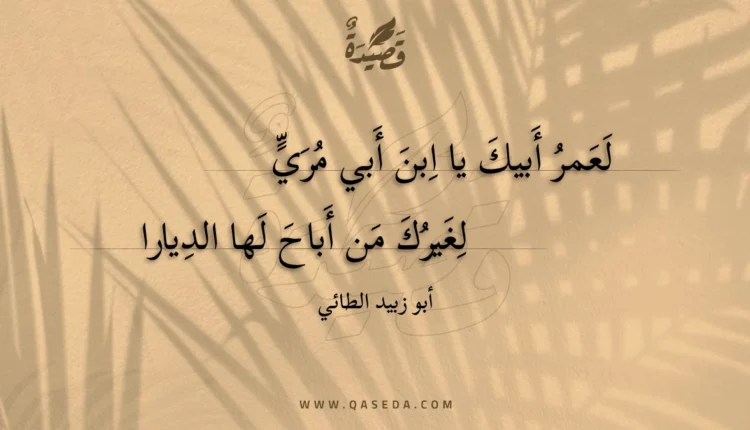 قَصِيْدَةٌ
لَعَمرُ أَبيكَ يا اِبنَ أَبي مُرَيٍّ
لِغَيرُكَ مَن أَباحَ لَها الدِيارا
أبو زبيد الطائي
WWW.QASEDA.COM